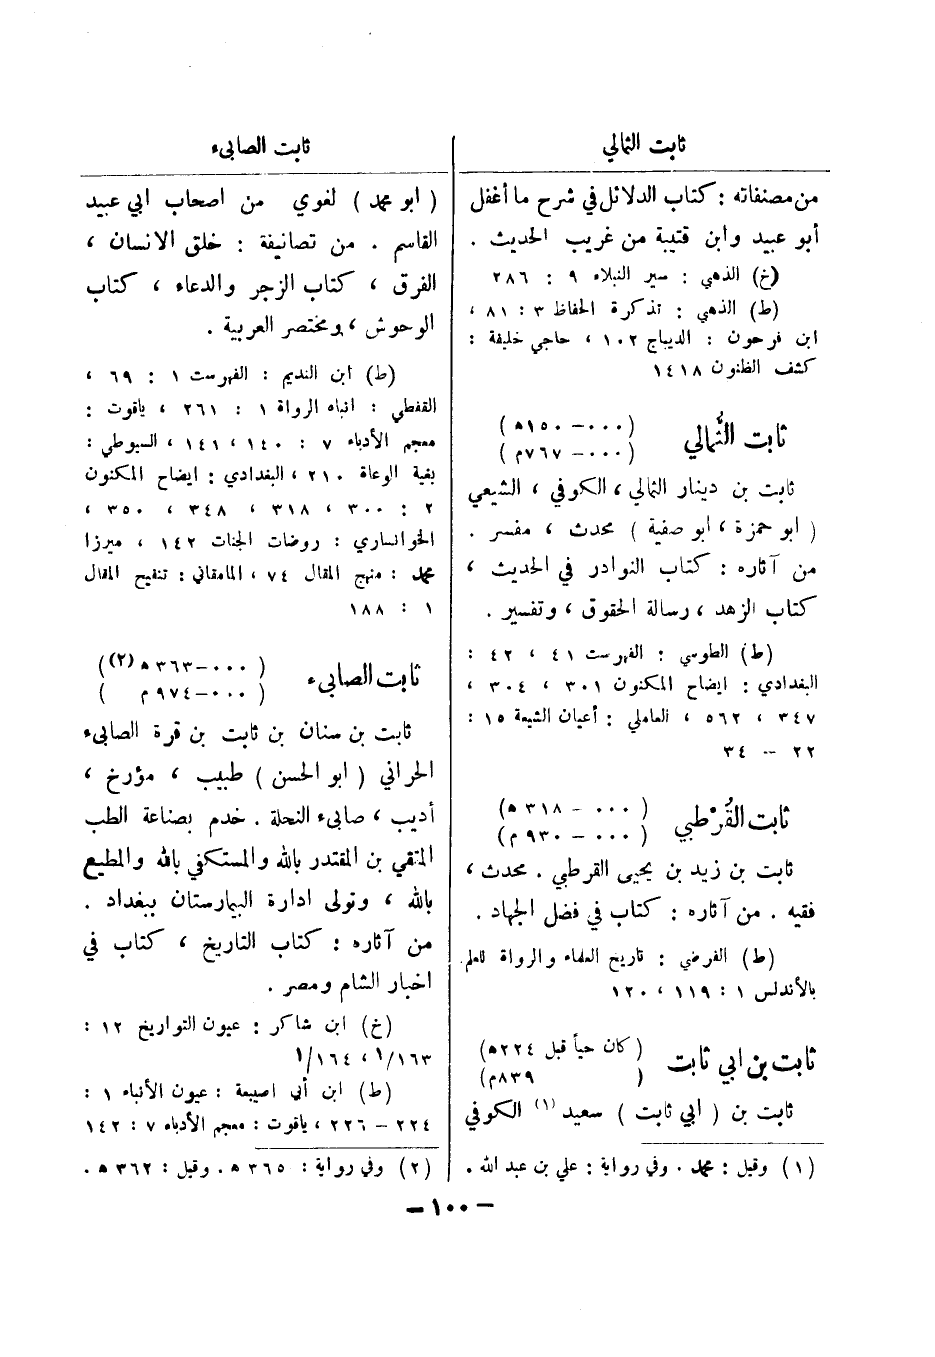 ثابت الثمالي
من مصنفاته : كتاب الدلائل في شرح ما أغفل
أبو عبيد وابن قتيبة من غريب الحديث .
(خ) الذهبي : سير النبلاء ٩ : ٢٨٦
(ط) الذهبي : تذكرة الحفاظ ٣ : ٨١ ،
ابن فرحون : الديباج ١٠٢ ، حاجي خليفة :
كشف الظنون ١٤١٨
ثابت الثُّمالي
(٠٠٠ – ١٥٠ه)
(٠٠٠ – ٧٦٧م)
ثابت بن دينار الثمالي ، الكوفي ، الشيعي
( ابو حمزة ، ابو صفية ) محدث ، مفسر .
من آثاره : كتاب النوادر في الحديث ،
كتاب الزهد ، رسالة الحقوق ، وتفسير .
(ط) الطوسي : الفهرست ٤١ ، ٤٢ :
البغدادي : ايضاح المكنون ٣٠١ ، ٣٠٤ ،
٣٤٧ ، ٥٦٢ ، العاملي : أعيان الشيعة ١٥ :
٢٢ – ٣٤
ثابت القُرْطبي
(٠٠٠ – ٣١٨ ه)
(٠٠٠ – ٩٣٠ م)
ثابت بن زيد بن يحيى القرطبي . محدث ،
فقيه . من آثاره : كتاب في فضل الجهاد .
(ط) الفرضي : تاريخ العلماء والرواة للعلم
بالأندلس ١ : ١١٩ ، ١٢٠
ثابت بن ابي ثابت
( كان حياً قبل ٢٢٤ه)
( ٨٣٩م)
ثابت بن ( ابي ثابت ) سعيد (١) الكوفي
(١) وقيل : محمد . وفي رواية : علي بن عبد الله .
ثابت الصابىء
( ابو محمد ) لغوي من اصحاب ابي عبيد
القاسم . من تصانيفة : خلق الانسان ،
الفرق ، كتاب الزجر والدعاء ، كتاب
الوحوش ، ومختصر العربية .
(ط) ابن النديم : الفهرست ١ : ٦٩ ،
القفطي : انباه الرواة ١ : ٢٦١ ، ياقوت :
معجم الأدباء ٧ : ١٤٠ ، ١٤١ ، السيوطي :
بغية الوعاة ٢١٠ ، البغدادي : ايضاح المكنون
٢ : ٣٠٠ ، ٣١٨ ، ٣٤٨ ، ٣٥٠ ،
الخوانساري : روضات الجنات ١٤٢ ، ميرزا
محمد : منهج المقال ٧٤ ، المامقاني : تنقيح المقال
١ : ١٨٨
ثابت الصابىء
(٠٠٠ – ٣٦٣ ه (٢))
(٠٠٠ – ٩٧٤ م )
ثابت بن سنان بن ثابت بن قرة الصابىء
الحراني ( ابو الحسن ) طبيب ، مؤرخ ،
أديب ، صابىء النحلة . خدم بصناعة الطب
المتقي بن المقتدر بالله والمستكفي بالله والمطيع
بالله ، وتولى ادارة البيمارستان ببغداد .
من آثاره : كتاب التاريخ ، كتاب في
اخبار الشام ومصر .
(خ) ابن شاكر : عيون التواريخ ١٢ :
١/١٦٣ ، ١/١٦٤
(ط) ابن أبي اصيبعة : عيون الأنباء ١ :
٢٢٤ – ٢٢٦ ، ياقوت : معجم الأدباء ٧ : ١٤٢
(٢) وفي رواية : ٣٦٥ ه . وقيل : ٣٦٢ ه .
– ١٠٠ –